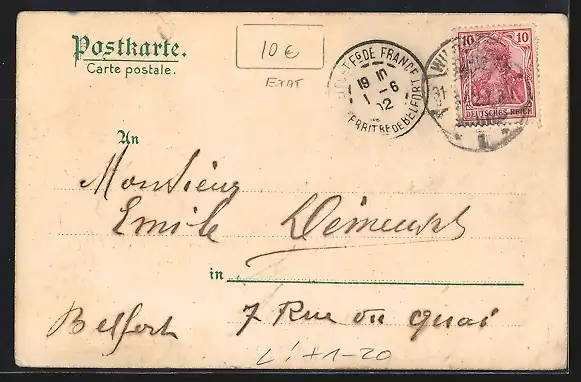 Postkarte.
Carte postale.
10 €
ETAT
FG DE FRANCE
19 10
1 - 6
02
TERRIT RE DE BELFORT
10 10
DEUTSCHES REICH
31
An
Monsieur
Emile
in
Belfort 7 Rue du Quai
1-20